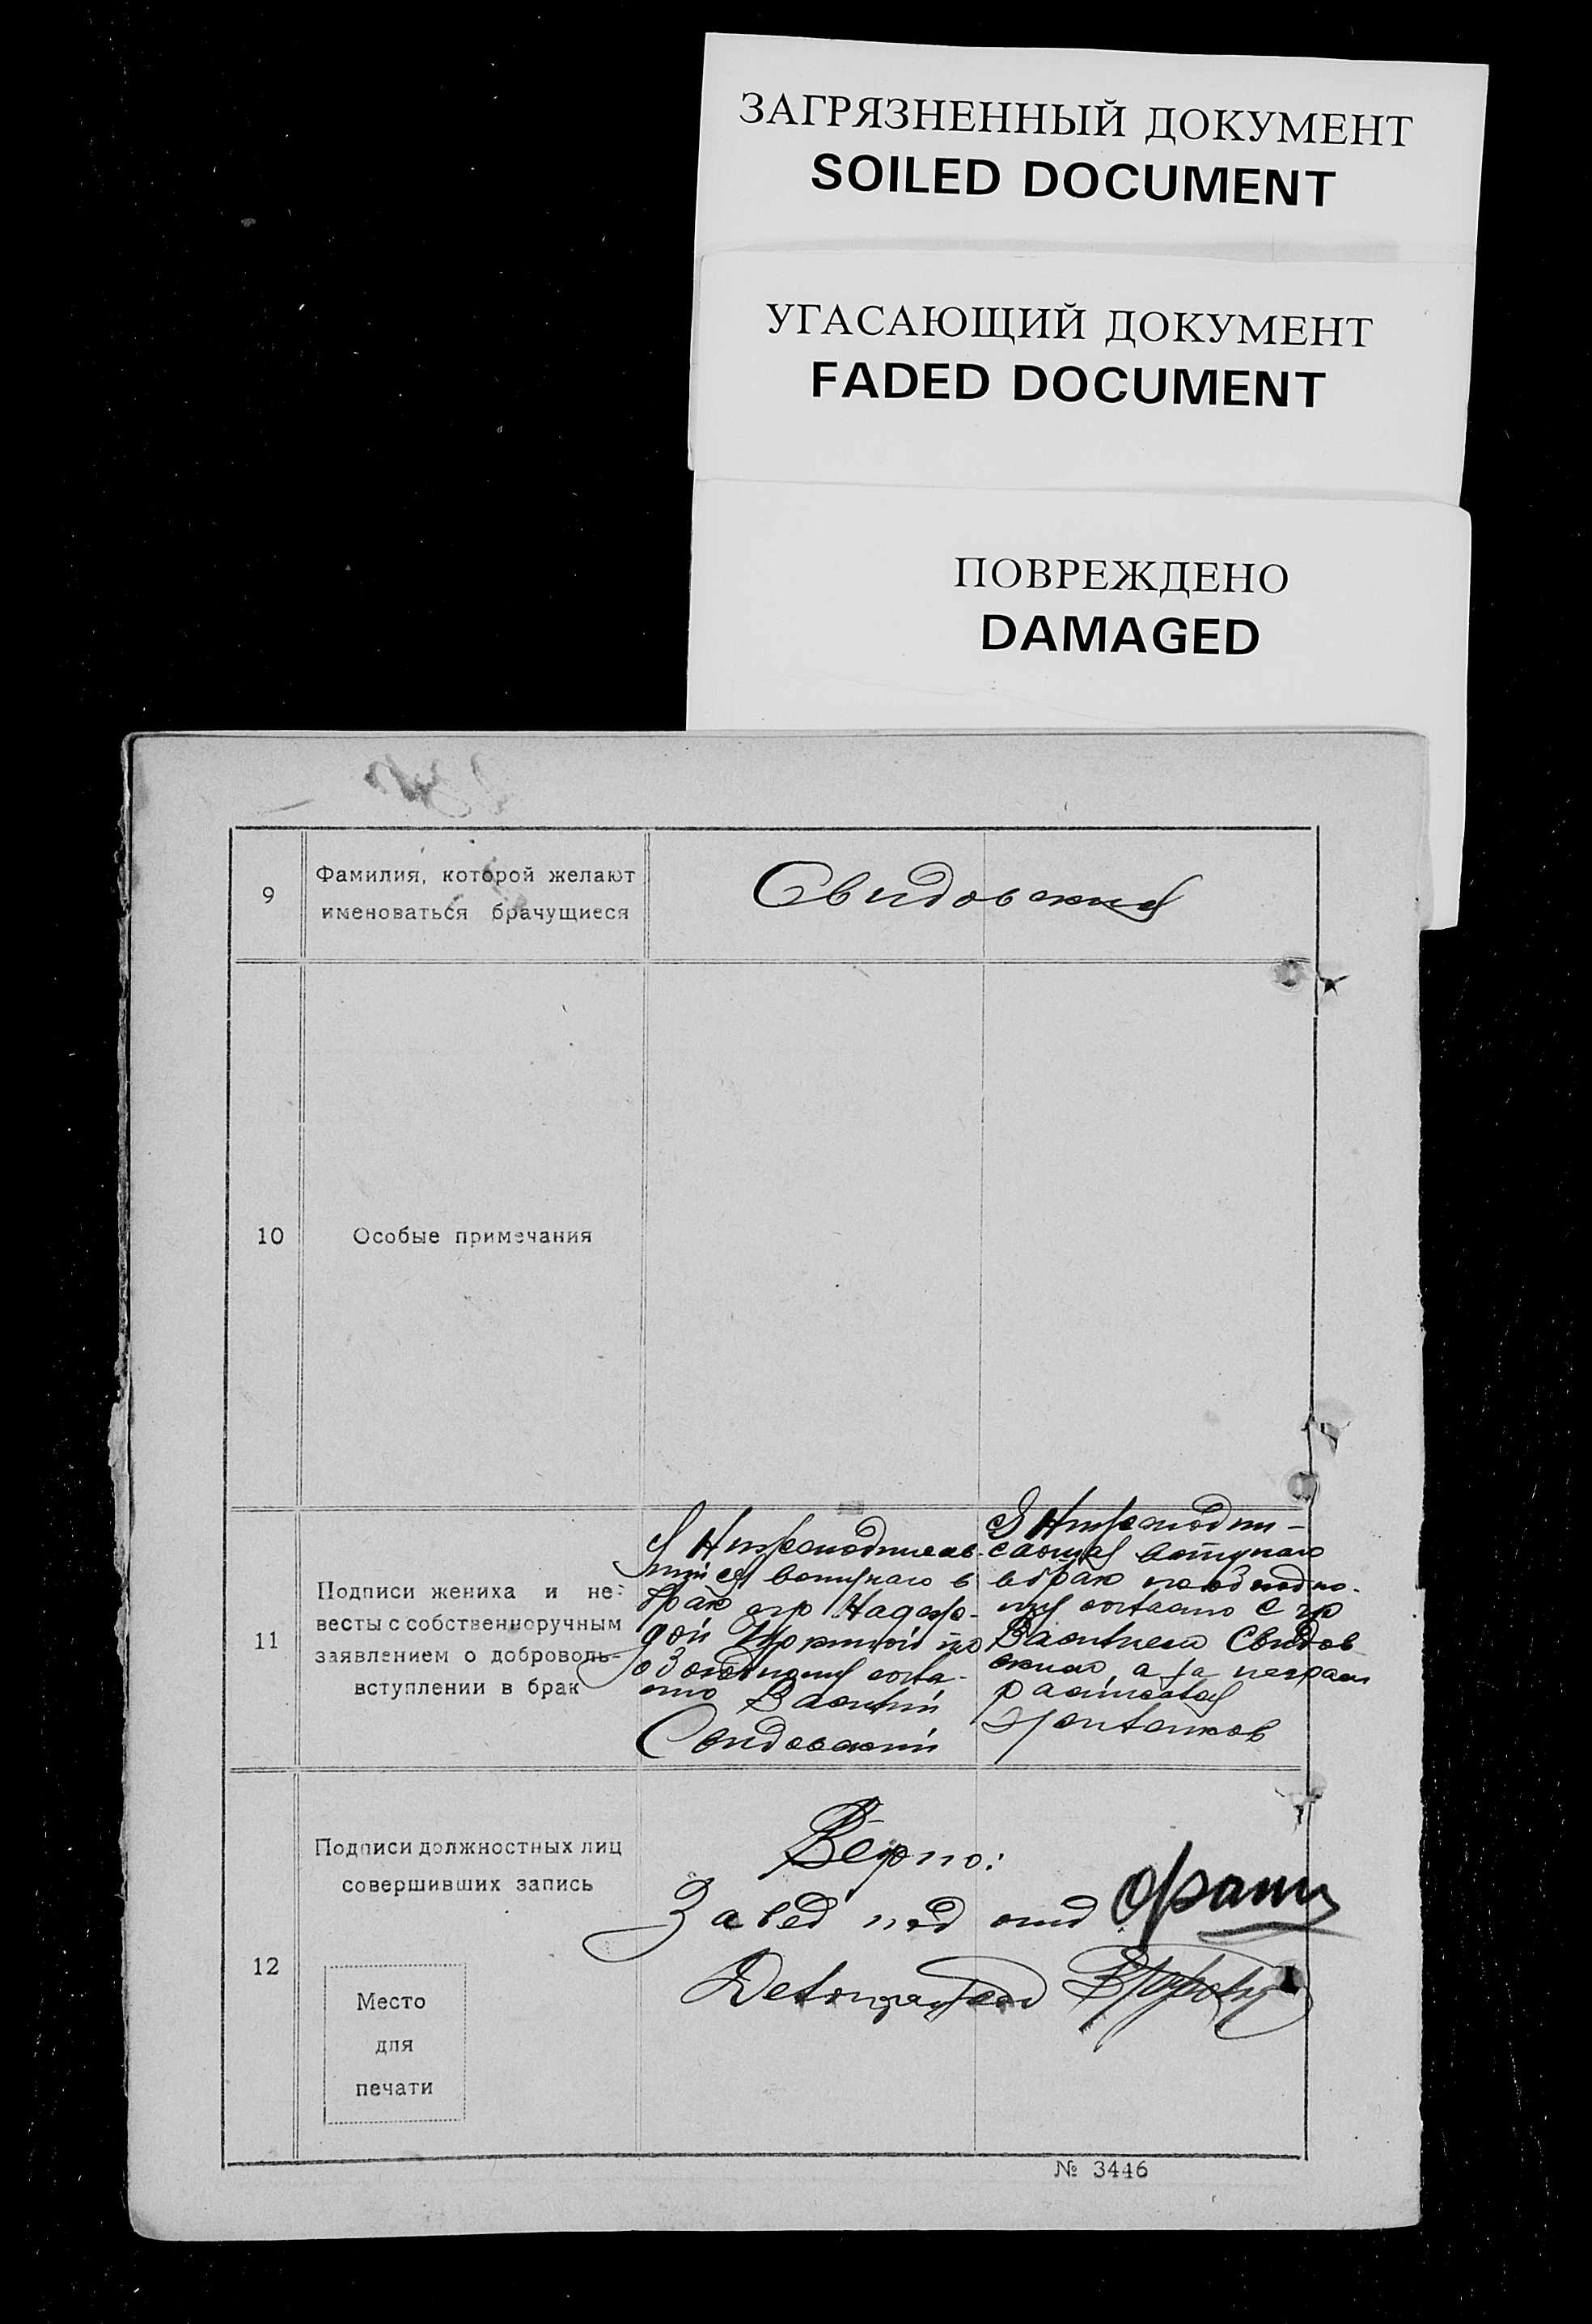 ЗАГРЯЗНЕННЫЙ ДОКУМЕНТ
SOILED DOCUMENT
УГАСАЮЩИЙ ДОКУМЕНТ
FADED DOCUMENT
ПОВРЕЖДЕНО
DAMAGED
9
Фамилия, которой желают
именоваться брачущиеся
Свидовския
10
Особые примечания
11
Подписи жениха и не-
весты с собственноручным
заявлением о доброволь-
вступлении в брак
Я Нижеподписав-
шийся вступаю в
брак с гр Надеж-
дой по
обоюдному согла-
сию Василий
Свидовский
Я Нижеподпи-
савшая вступаю
в брак по обоюдно-
му согласию с гр
Василием Свидов
ским, а за неграм
расписался
12
Подписи должностных лиц
совершивших запись
Верно:
Завед под отд
Делопроизвод
Место
для
печати
№ 3446